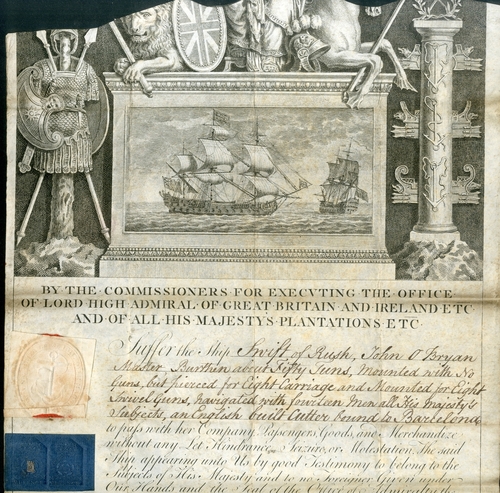 BY THE COMMISSIONERS FOR EXECVTING THE OFFICE
OF LORD HIGH ADMIRAL OF GREAT BRITAIN AND IRELAND ETC
AND OF ALL HIS MAJESTYS PLANTATIONS ETC
Suffer the Ship Swift of Rush, John O'Bryan
Master Burthen about Fifty Tuns, Mounted with No
Guns, but pierced for Eight Carriage and Mounted for Eight
Swivel Guns, navigated with fourteen Men all His Majesty's
Subjects, an English built Cutter bound to Barcelona
to pass with her Company, Passengers, Goods, and Merchandize
without any Let Hindrance, Seizure, or Molestation, the said
Ship appearing unto Us by good Testimony to belong to the
Subjects of His Majesty and to no Foreigner Given under
Our Hands and the Seal of the Office of Admiralty